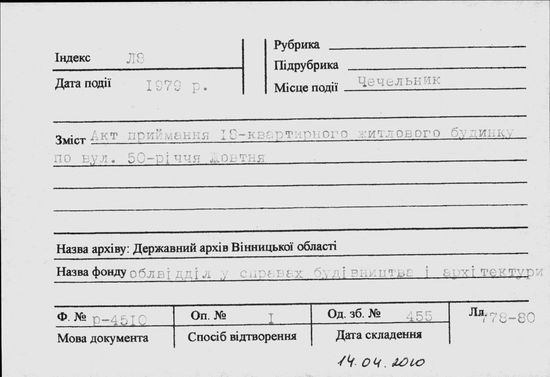 Індекс Л8
Дата події 1979 р.
Рубрика
Підрубрика
Місце події Чечельник
Зміст Акт приймання 18-квартирного житлового будинку
по вул. 50-річчя Жовтня
Назва архіву: Державний архів Вінницької області
Назва фонду облвідділ у справах будівництва і архітектури
Ф. № р-4510 Оп. № I Од. зб. № 455 Лл. 778-80
Мова документа Спосіб відтворення Дата складення
14.04.2010